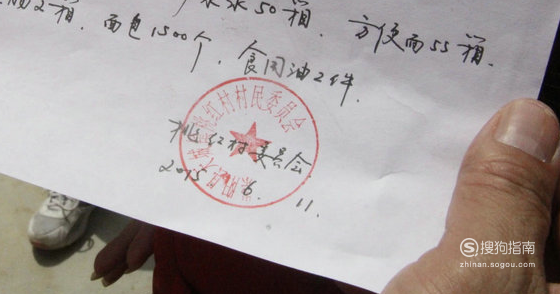 2箱. 面包1500个, 食用油2件.
50箱. 方便面55箱.
桃红村委员会
2015. 6. 11.
红村村民委员会
搜狗指南
zhinan.sogou.com